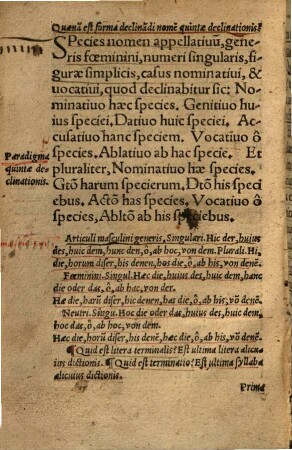 Quænã est forma declinãdi nomẽ quintæ declinationis?
Species nomen appellatiuũ, gene
ris fœminini, numeri singularis, fi
guræ simplicis, casus nominatiui, &
uocatiui, quod declinabitur sic: No
minatiuo hæc species. Genitiuo hu
ius speciei. Datiuo huic speciei. Ac
cusatiuo hanc speciem. Vocatiuo ô
Paradigma
species. Ablatiuo ab hac specie. Et
quintæ de
pluraliter, Nominatiuo hæ species.
clinationis.
Gtõ harum specierum. Dtõ his speci
ebus. Actõ has species. Vocatiuo ô
species, Abltõ ab his speciebus.
Articuli masculini generis, Singulari. Hic der, huius
des, huic dem, hunc den, ô, ab hoc, von dem. Plurali. Hi
die, horum diser, his denen, hos die, ô, ab his, võ denẽ.
Fœminini. Singul. Hæc die, huius des, huic dem, hanc
die oder das, ô, ab hac, von der.
Hæ die, harũ diser, his denen, has die, ô, ab his, võ denẽ.
Neutri. Singu. Hoc die oder das, huius des, huic dem,
hoc das, ô, ab hoc, von dem.
Hæc die, horũ diser, his denẽ, hæc die, ô, ab his, võ denẽ.
¶ Quid est litera terminalis? Est ultima litera alicu
ius dictionis. ¶ Quid est terminatio? Est ultima syllaba
alicuius dictionis.
Prima